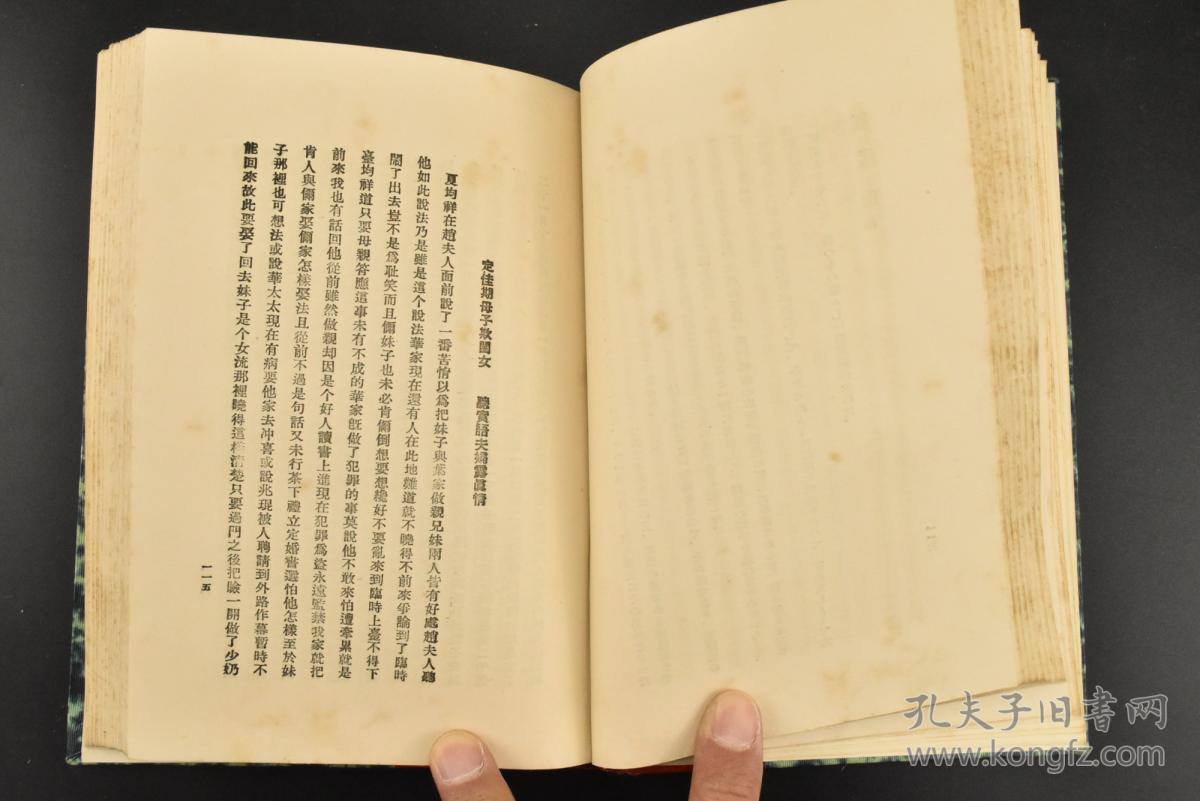 定佳期母子欺閨女　　聽實語夫婦露眞情
夏均祥在趙夫人面前說了一番苦情以爲把妹子與葉家做親兄妹兩人皆有好處趙夫人聽
他如此說法乃是雖是這个說法華家現在還有人在此地難道就不曉得不前來爭論到了臨時
鬧了出去豈不是爲耻笑而且儞妹子也未必肯儞倒想要想纔好不要亂來到臨時上臺不得下
臺均祥道只要母親答應這事未有不成的華家旣做了犯罪的事莫說他不敢來怕遭牽累就是
前來我也有話回他從前雖然做親却因是个好人讀書上進現在犯罪爲盜永遠監禁我家就把
肯人與儞家娶儞家怎樣娶法且從前不過是句話又未行茶下禮立定婚書還怕他怎樣至於妹
子那裡也可想法或說華太太現在有病要他家去冲喜或說兆琨被人聘請到外路作幕暫時不
能回來故此要娶了回去妹子是个女流那裡曉得這樣清楚只要過門之後把臉一開做了少奶
一一五
孔夫子旧书网
www.kongfz.com